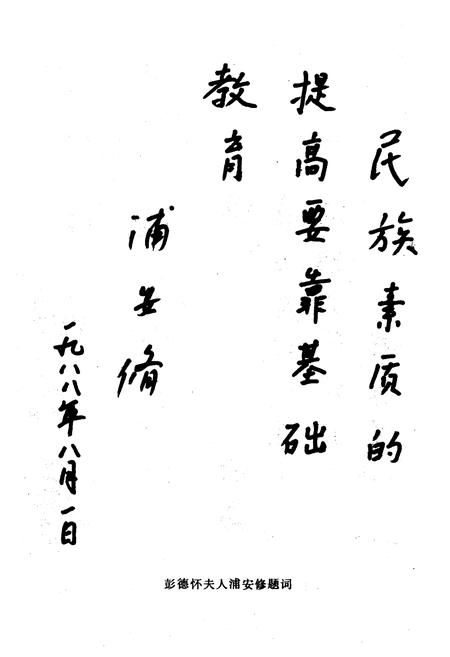 民族素质的
提高要靠基础
教育
浦安修
一九八八年八月一日
彭德怀夫人浦安修题词